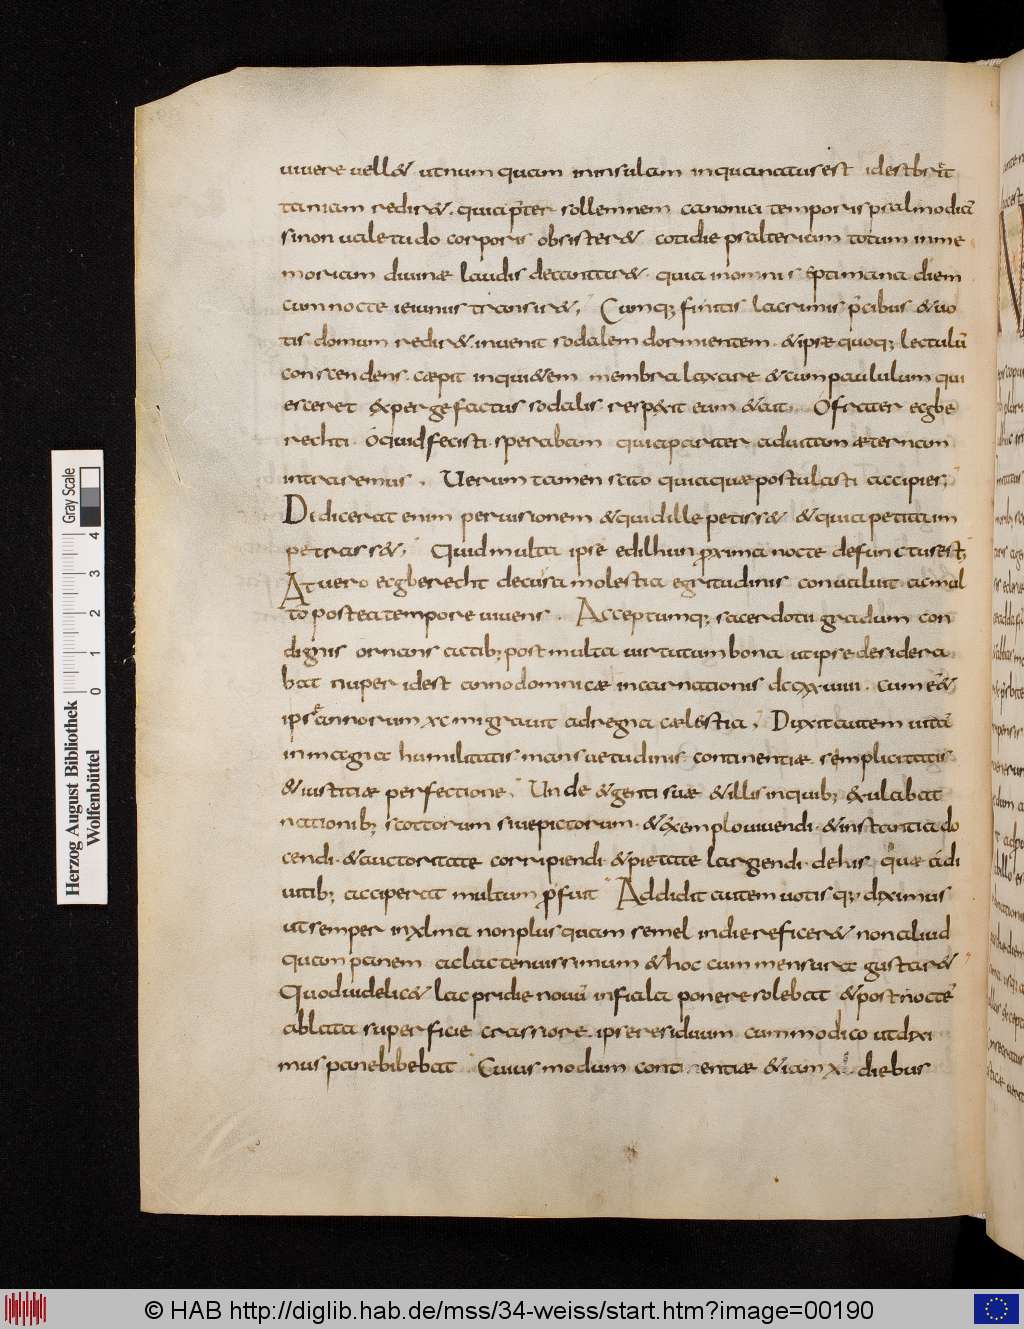 uiuere uell& utnumquam ininsulam inquanatusest idestbrit
taniam redir&. quiap̄ter sollemnem canonici temporis psalmodiā
sinon ualetudo corporis obsister& cotidie psalterium totum inme
moriam diuinae laudis decantar&. quia inomni septimana diem
cum nocte ieiunus transir&; Cumq; finitis lacrimis p̄cibus &uo
tis domum redir& inuenit sodalem dormientem. &ipse quoq; lectulū
conscendens. caepit inqui&em membra laxare &cum paululum qui
esceret expergefactus sodalis resp&xit eum &ait. O frater ecgbe
rechti. o quid fecisti. sperabam quia pariter ad uitam aeternam
intraremus. Uerum tamen scito quia quae postulasti accipies;
Didicerat enim per uisionem &quid ille petiss& &quia petita im
petrass&; Quid multa ipse edilhun proxima nocte defunctus est;
At uero ecgberecht decussa molestia egritudinis conualuit. ac mul
to postea tempore uiuens. Acceptumq; sacerdotii gradum con
dignis ornans actib; post multa uirtutum bona ut ipse desidera
bat nuper id est anno dominicae incarnationis dccxxuiiii. cum ess&
ipse annorum xc migrauit ad regna caelestia. Duxit autem uitā
in magna humilitatis mansuetudinis continentiae semplicitatis
&iustitiae perfectione. Unde &genti suae &illis in quib; exulabat
nationib; scottorum siue pictorum. &exemplo uiuendi. &instantia do
cendi. &auctoritate corripiendi. &pietate largiendi. de his quae a di
uitib; acciperat multum p̄fuit. Addidit autem uotis quae diximus
ut semper in xlma non plus quam semel in die reficer& non aliud
quam panem ac lac tenuissimum &hoc cum mensura gustar&
Quod uidelic& lac pridie nouū in fiala ponere solebat &post noctē
ablata superficie crassiore. ipse residuum cum modico ut dixi
mus pane bibebat. Cuius modum continentiae &iam xl diebus
Herzog August Bibliothek
Wolfenbüttel
0 1 2 3 4
Gray Scale
© HAB http://diglib.hab.de/mss/34-weiss/start.htm?image=00190